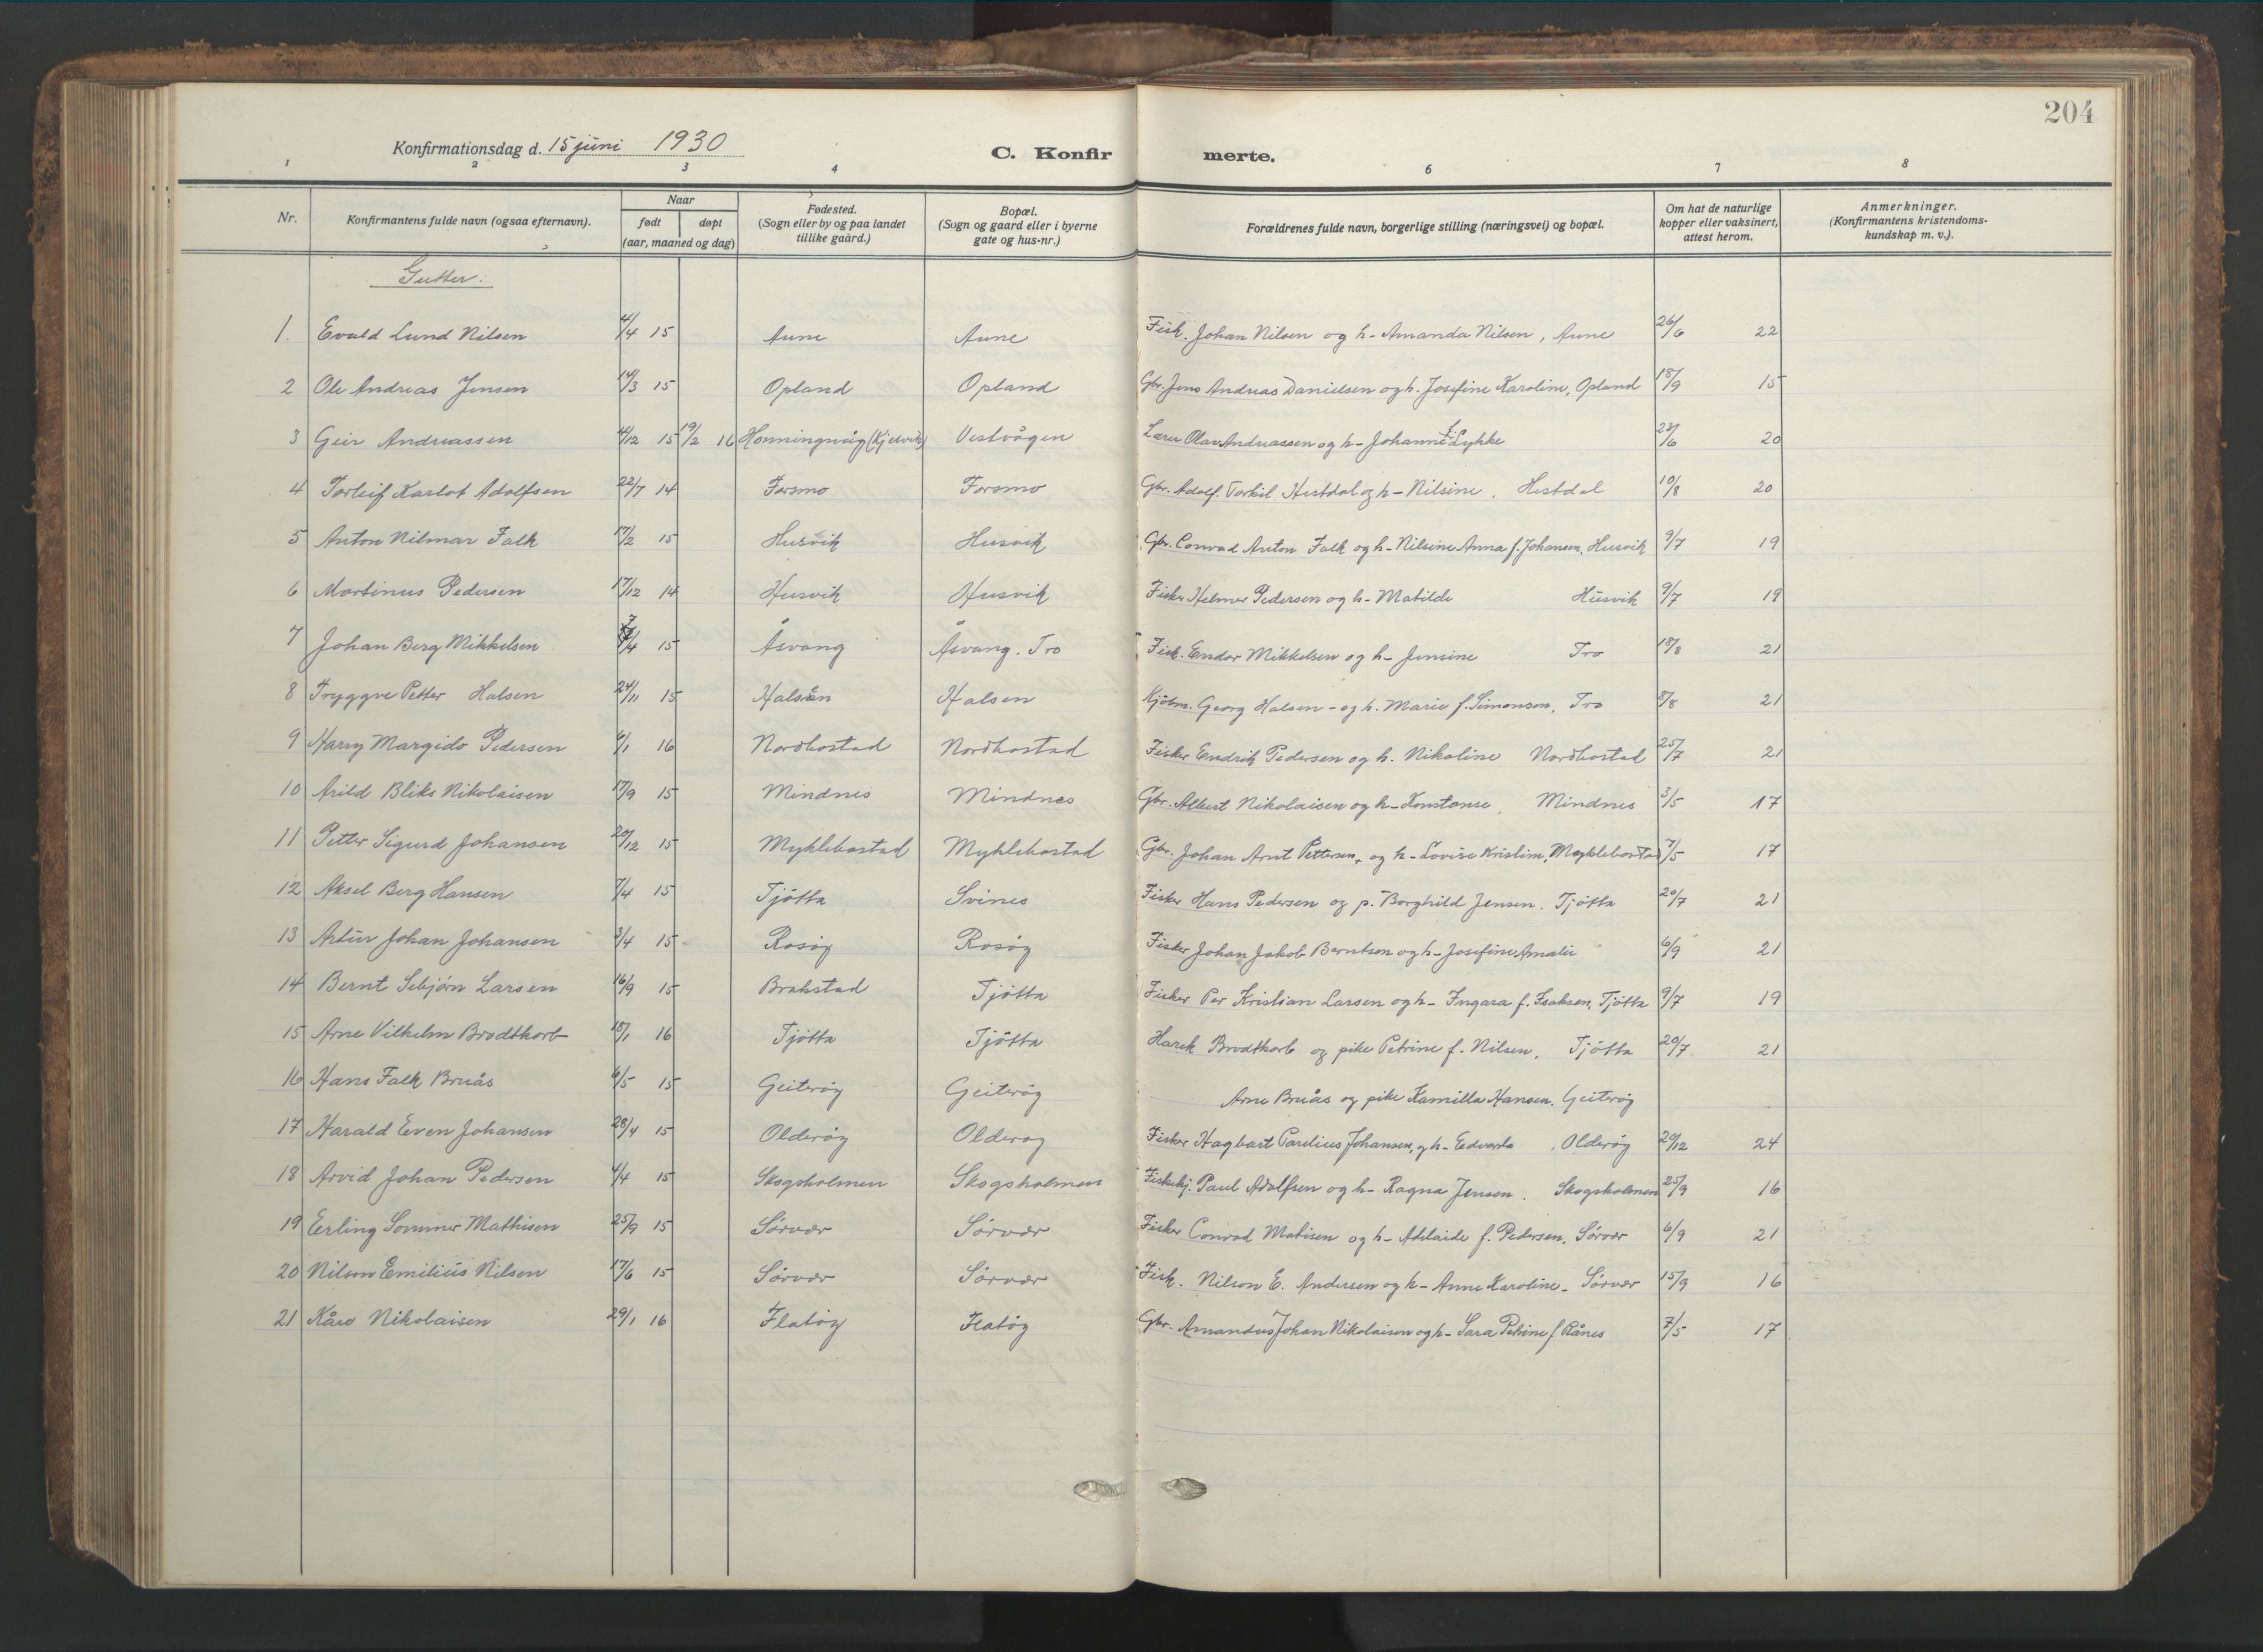 204
Konfirmationsdag d. 15 juni 1930
C. Konfirmerte.
1 2 3 4 6 7 8
Nr. Konfirmantens fulde navn (ogsaa efternavn). Naar født døpt (aar, maaned og dag) Fødested. (Sogn eller by og paa landet tillike gaard.) Bopæl. (Sogn og gaard eller i byerne gate og hus-nr.) Forældrenes fulde navn, borgerlige stilling (næringsvei) og bopæl. Om hat de naturlige kopper eller vaksinert, attest herom. Anmerkninger. (Konfirmantens kristendoms-kundskap m. v.).
Gutter:
1. Evald Lund Nilsen 4/4 15 Aune Aune Fisk. Johan Nilsen og h- Amanda Nilsen, Aune 26/6 22
2 Ole Andreas Jensen 14/3 15 Opland Opland Gbr. Jens Andreas Danielsen og h. Josefine Karoline, Opland 18/9 15
3 Geir Andreassen 4/12 15 19/2 16 Honningsvåg (Kjelvik) Vestvågen Lærer Olav Andreassen og h- Johanne f. Lykke 28/6 20
4 Torleif Karlot Adolfsen 22/7 14 Forsmo Forsmo Gbr. Adolf Torkil Hestdal og h- Nilsine. Hestdal 10/8 20
5 Anton Nilmar Falk 17/2 15 Husvik Husvik Gbr. Conrad Anton Falk og h- Nilsine Anna f. Johansen, Husvik 9/7 19
6 Martinus Pedersen 17/12 14 Husvik Husvik Fisker Helmer Pedersen og h- Matilde Husvik 9/7 19
7 Johan Berg Mikkelsen 7/4 15 Åsvang Åsvang. Tro Fisk. Endor Mikkelsen og h- Jensine Tro 18/8 21
8 Tryggve Petter Halsen 24/11 15 Halsen Halsen Kjøbm. Georg Halsen - og h. Marie f. Simonsen, Tro 8/8 21
9 Harry Margido Pedersen 6/1 16 Nordbostad Nordbostad Fisker Endrik Pedersen og h. Nikoline Nordbostad 25/7 21
10 Arild Bliks Nikolaisen 17/9 15 Mindnes Mindnes Gbr. Albert Nikolaisen og h- Konstanse. Mindnes 3/5 17
11 Petter Sigurd Johansen 20/12 15 Myklebostad Myklebostad Gbr. Johan Arnt Pettersen, og h- Lovise Kristine, Myklebostad 7/5 17
12 Aksel Berg Hansen 7/4 15 Tjøtta Svines Fisker Hans Pedersen og p. Borghild Jensen. Tjøtta 20/7 21
13 Artur Johan Johansen 3/4 15 Rosøy Rosøy Fisker Johan Jakob Berntsen og h- Josefine Amalie 6/9 21
14 Bernt Sebjørn Larsen 16/9 15 Brakstad Tjøtta Fisker Per Kristian Larsen og h- Ingara f. Isaksen, Tjøtta 9/7 19
15 Arne Vilhelm Brodtkorb 18/1 16 Tjøtta Tjøtta Harek Brodtkorb og pike Petrine f. Nilsen. Tjøtta 20/7 21
16 Hans Falk Bruås 6/5 15 Geiterøy Geiterøy Arne Bruås og pike Kamilla Hansen. Geiterøy
17 Harald Even Johansen 28/4 15 Olderøy Olderøy Fisker Hagbart Parelius Johansen, og h- Edvarda. Olderøy 20/12 24
18 Arvid Johan Pedersen 4/4 15 Skogsholmen Skogsholmen Fiskekj. Paul Adolfsen og h- Ragna Jensen. Skogsholmen 25/9 16
19 Erling Sommer Mathisen 25/9 15 Sørvær Sørvær Fisker Conrad Matisen og h- Adelaide f. Pedersen. Sørvær 6/9 21
20 Nilson Emilius Nilsen 17/6 15 Sørvær Sørvær Fisk. Nilson E. Andersen og h- Anne Karoline - Sørvær 15/9 16
21 Kåre Nikolaisen 29/1 16 Flatøy Flatøy Gbr. Amandus Johan Nikolaisen og h- Sara Petrine f. Rånes 7/5 17